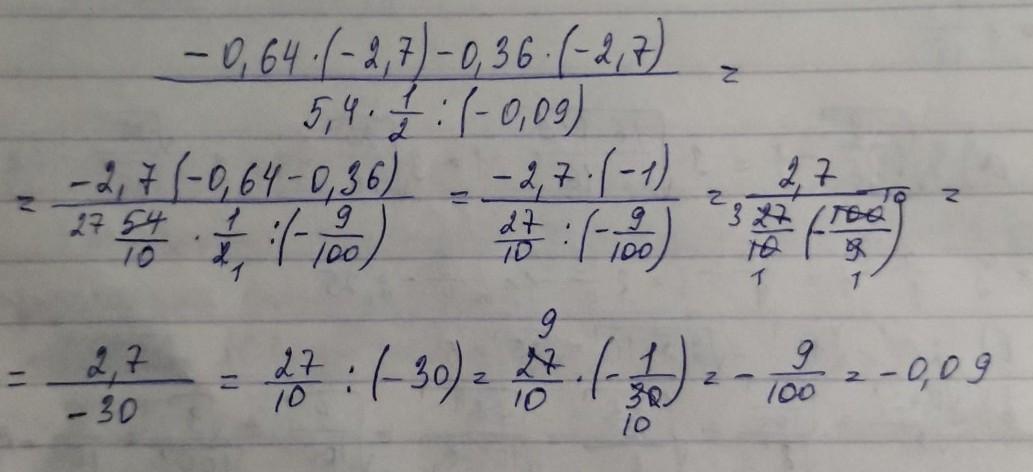 (-0,64·(-2,7)-0,36·(-2,7))/(5,4·1/2:(-0,09)) =
= (-2,7(-0,64-0,36))/(27 54/10·1/2 1:(-9/100)) = (-2,7·(-1))/(27/10:(-9/100)) = 2,7/(3 27/10 1(-100/9 10 1)) =
= 2,7/-30 = 27/10:(-30) = 9 27/10·(-1/30 10) = -9/100 = -0,09